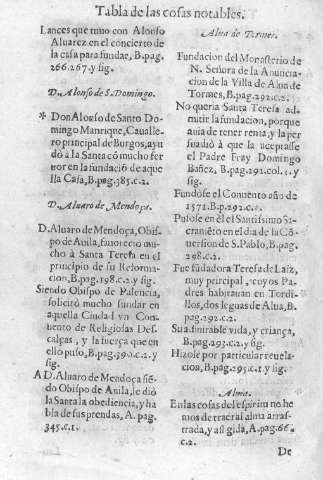 Tabla de las cosas notables.
Lances que tuuo con Alonso
Aluarez en el concierto de
la casa para fundar, B.pag.
266.267.y sig.
D. Alonso de S. Domingo.
* Don Alonso de Santo Do-
mingo Manrique, Caualle-
ro principal de Burgos, ayu
dò à la Santa cõ mucho fer
uor en la fundaciõ de aque
lla Casa, B.pag.385.c.2.
D. Aluaro de Mendoça.
D. Aluaro de Mendoça, Obis-
po de Auila, fauoreciò mu-
cho à Santa Teresa en el
principio de su Reforma-
cion, B.pag.198.c.2.y sig.
Siendo Obispo de Palencia,
solicitò mucho fundar en
aquella Ciudad vn Con-
uento de Religiosas Des-
calças, y la fuerça que en
ello puso, B.pag.390.c.2. y
sig.
A D. Aluaro de Mendoça siē-
do Obispo de Auila, le diò
la Santa la obediencia, y ha
bla de sus prendas, A. pag.
345.c.1.
Alua de Tormes.
Fundacion del Monasterio de
N. Señora de la Anuncia-
cion de la Villa de Alua de
Tormes, B.pag.292.c.2.
No queria Santa Teresa ad-
mitir la fundacion, porque
auia de tener renta, y la per
suadiò à que la aceptasse
el Padre Fray Domingo
Bañez, B.pag.292.col.1.y
sig.
Fundòse el Conuento año de
1571.B.pag.292.c.1.
Pusose en èl el Santissimo Sa-
cramēto en el dia de la Cõ
uersion de S. Pablo, B.pag.
298.c.2.
Fue fũdadora Teresa de Laiz,
muy principal, cuyos Pa-
dres habitauan en Tordi-
llos, dos leguas de Alua, B.
pag.292.c.2.
Su admirable vida, y criança,
B.pag.293.c.2.y sig.
Hizose por particular reuela-
cion, B.pag.295.c.1.y sig.
Alma.
En las cosas del espiritu no he
mos de traer al alma arras-
trada, y afligida, A.pag.66.
c.2.
De